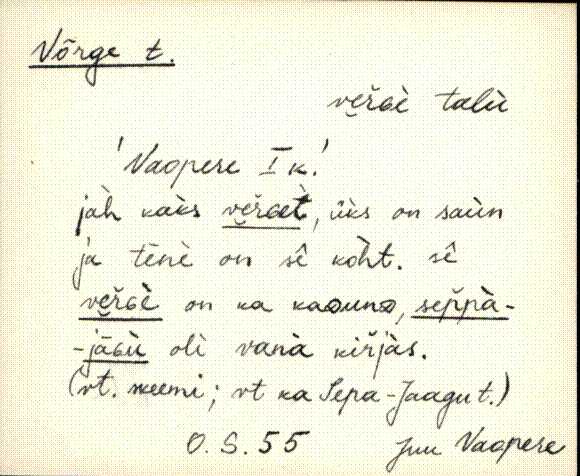 Võrge t.
ve̮řɢè talù
'Vaopere I k.'
jàh kaks ve̮řɢet̀, ǜks on saùn
ja tēnè on sê kòht. sê
ve̮řɢè on ka kaᴅunᴅ, sep̌pà-
-jāɢù olì vanà kiřjàs.
(vt. meemi; vt ka Sepa-Jaagu t.)
O.S. 55 Juu Vaopere